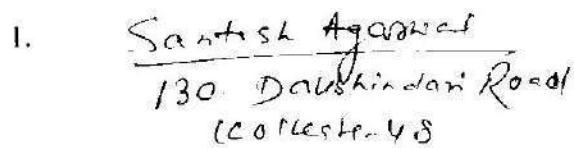 1. Santosh Agarwal
130 Dakshindari Road
Kolkata-48